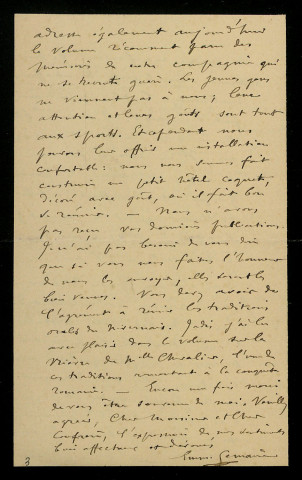 adresse également aujourd'hui
le volume récemment paru des
mémoires de notre compagnie qui
ne se recrute guère. Les jeunes gens
ne viennent pas à nous ; leur
attention et leurs goûts sont tout
aux sports. Et cependant nous
pouvons leur offrir une installation
confortable : nous nous sommes fait
construire un petit hôtel coquet,
décoré avec goût, où il fait bon
se réunir. — Nous n'avons
pas reçu vos dernières publications.
Je n'ai pas besoin de vous dire
que si vous nous faites l'honneur
de nous les envoyer, elles seront les
bien venues. Vous devez avoir de
l'agrément à réunir les traditions
orales du Nivernais. Jadis j'ai lu
avec plaisir dans le volume sur la
Nièvre de Mille Chevalier, l'une de
ces traditions remontant à la conquête
romaine. — Encore une fois merci
de vous être souvenu de moi. Veuillez
agréer, Cher Monsieur et Cher
Confrère, l'expression de mes sentiments
bien affectueux et dévoués.
3